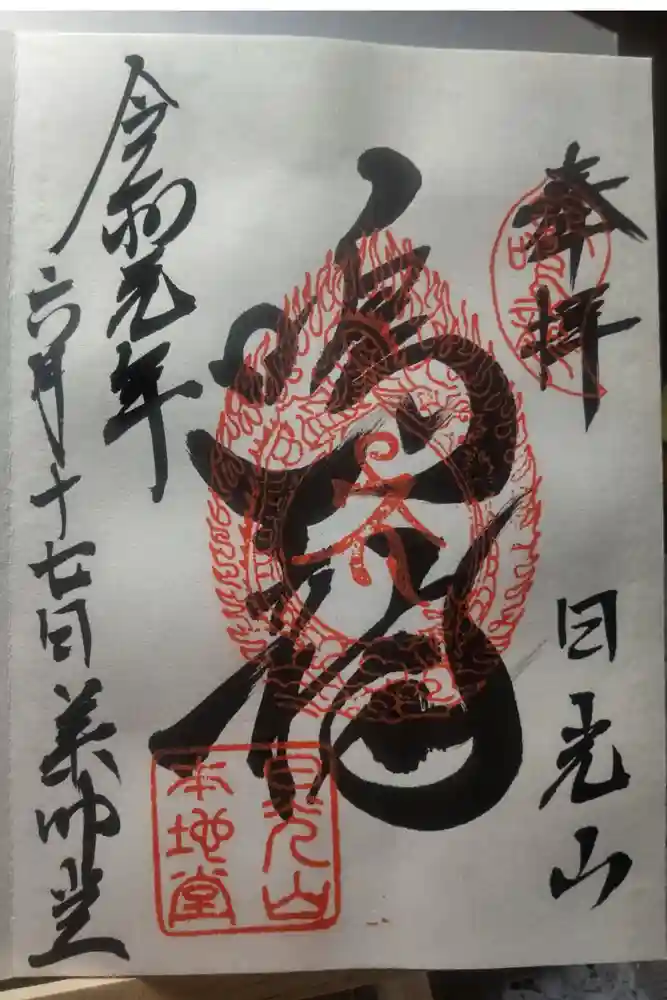 奉拝
日光山
鳴龍
令和元年
六月十七日 薬師堂
日光山
本地堂